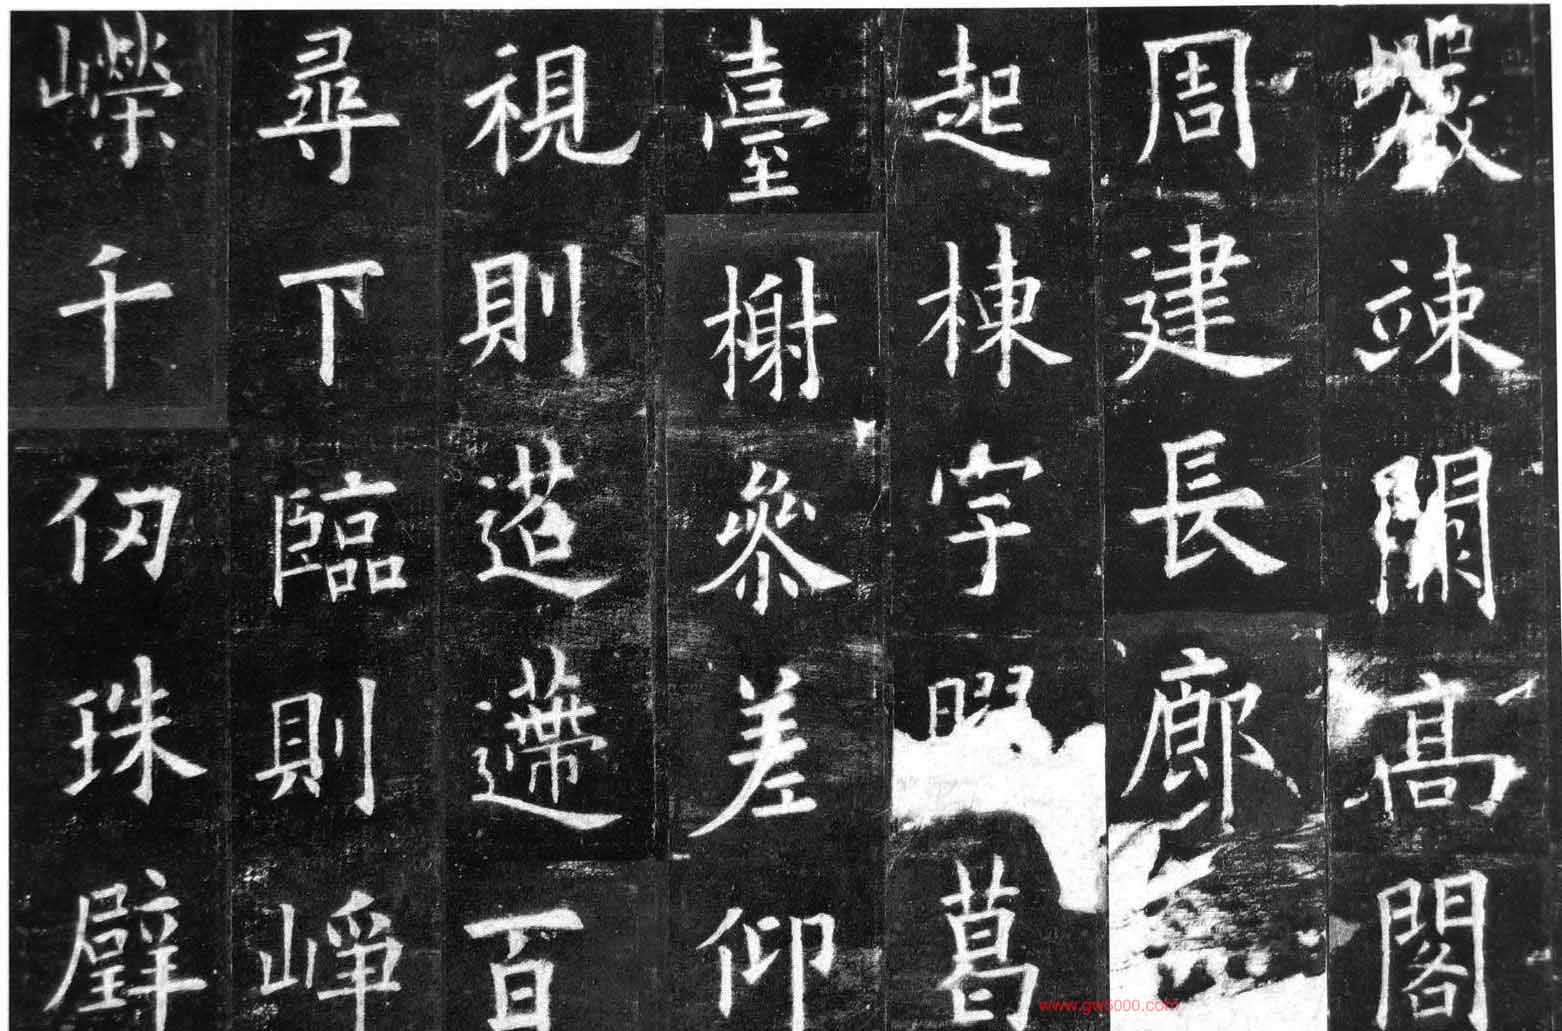 巖竦闕高閣
周建長廊
起棟宇葛
臺榭參差仰
視則迢遰百
尋下臨則崢
嶸千仞珠璧
www.gw5000.com